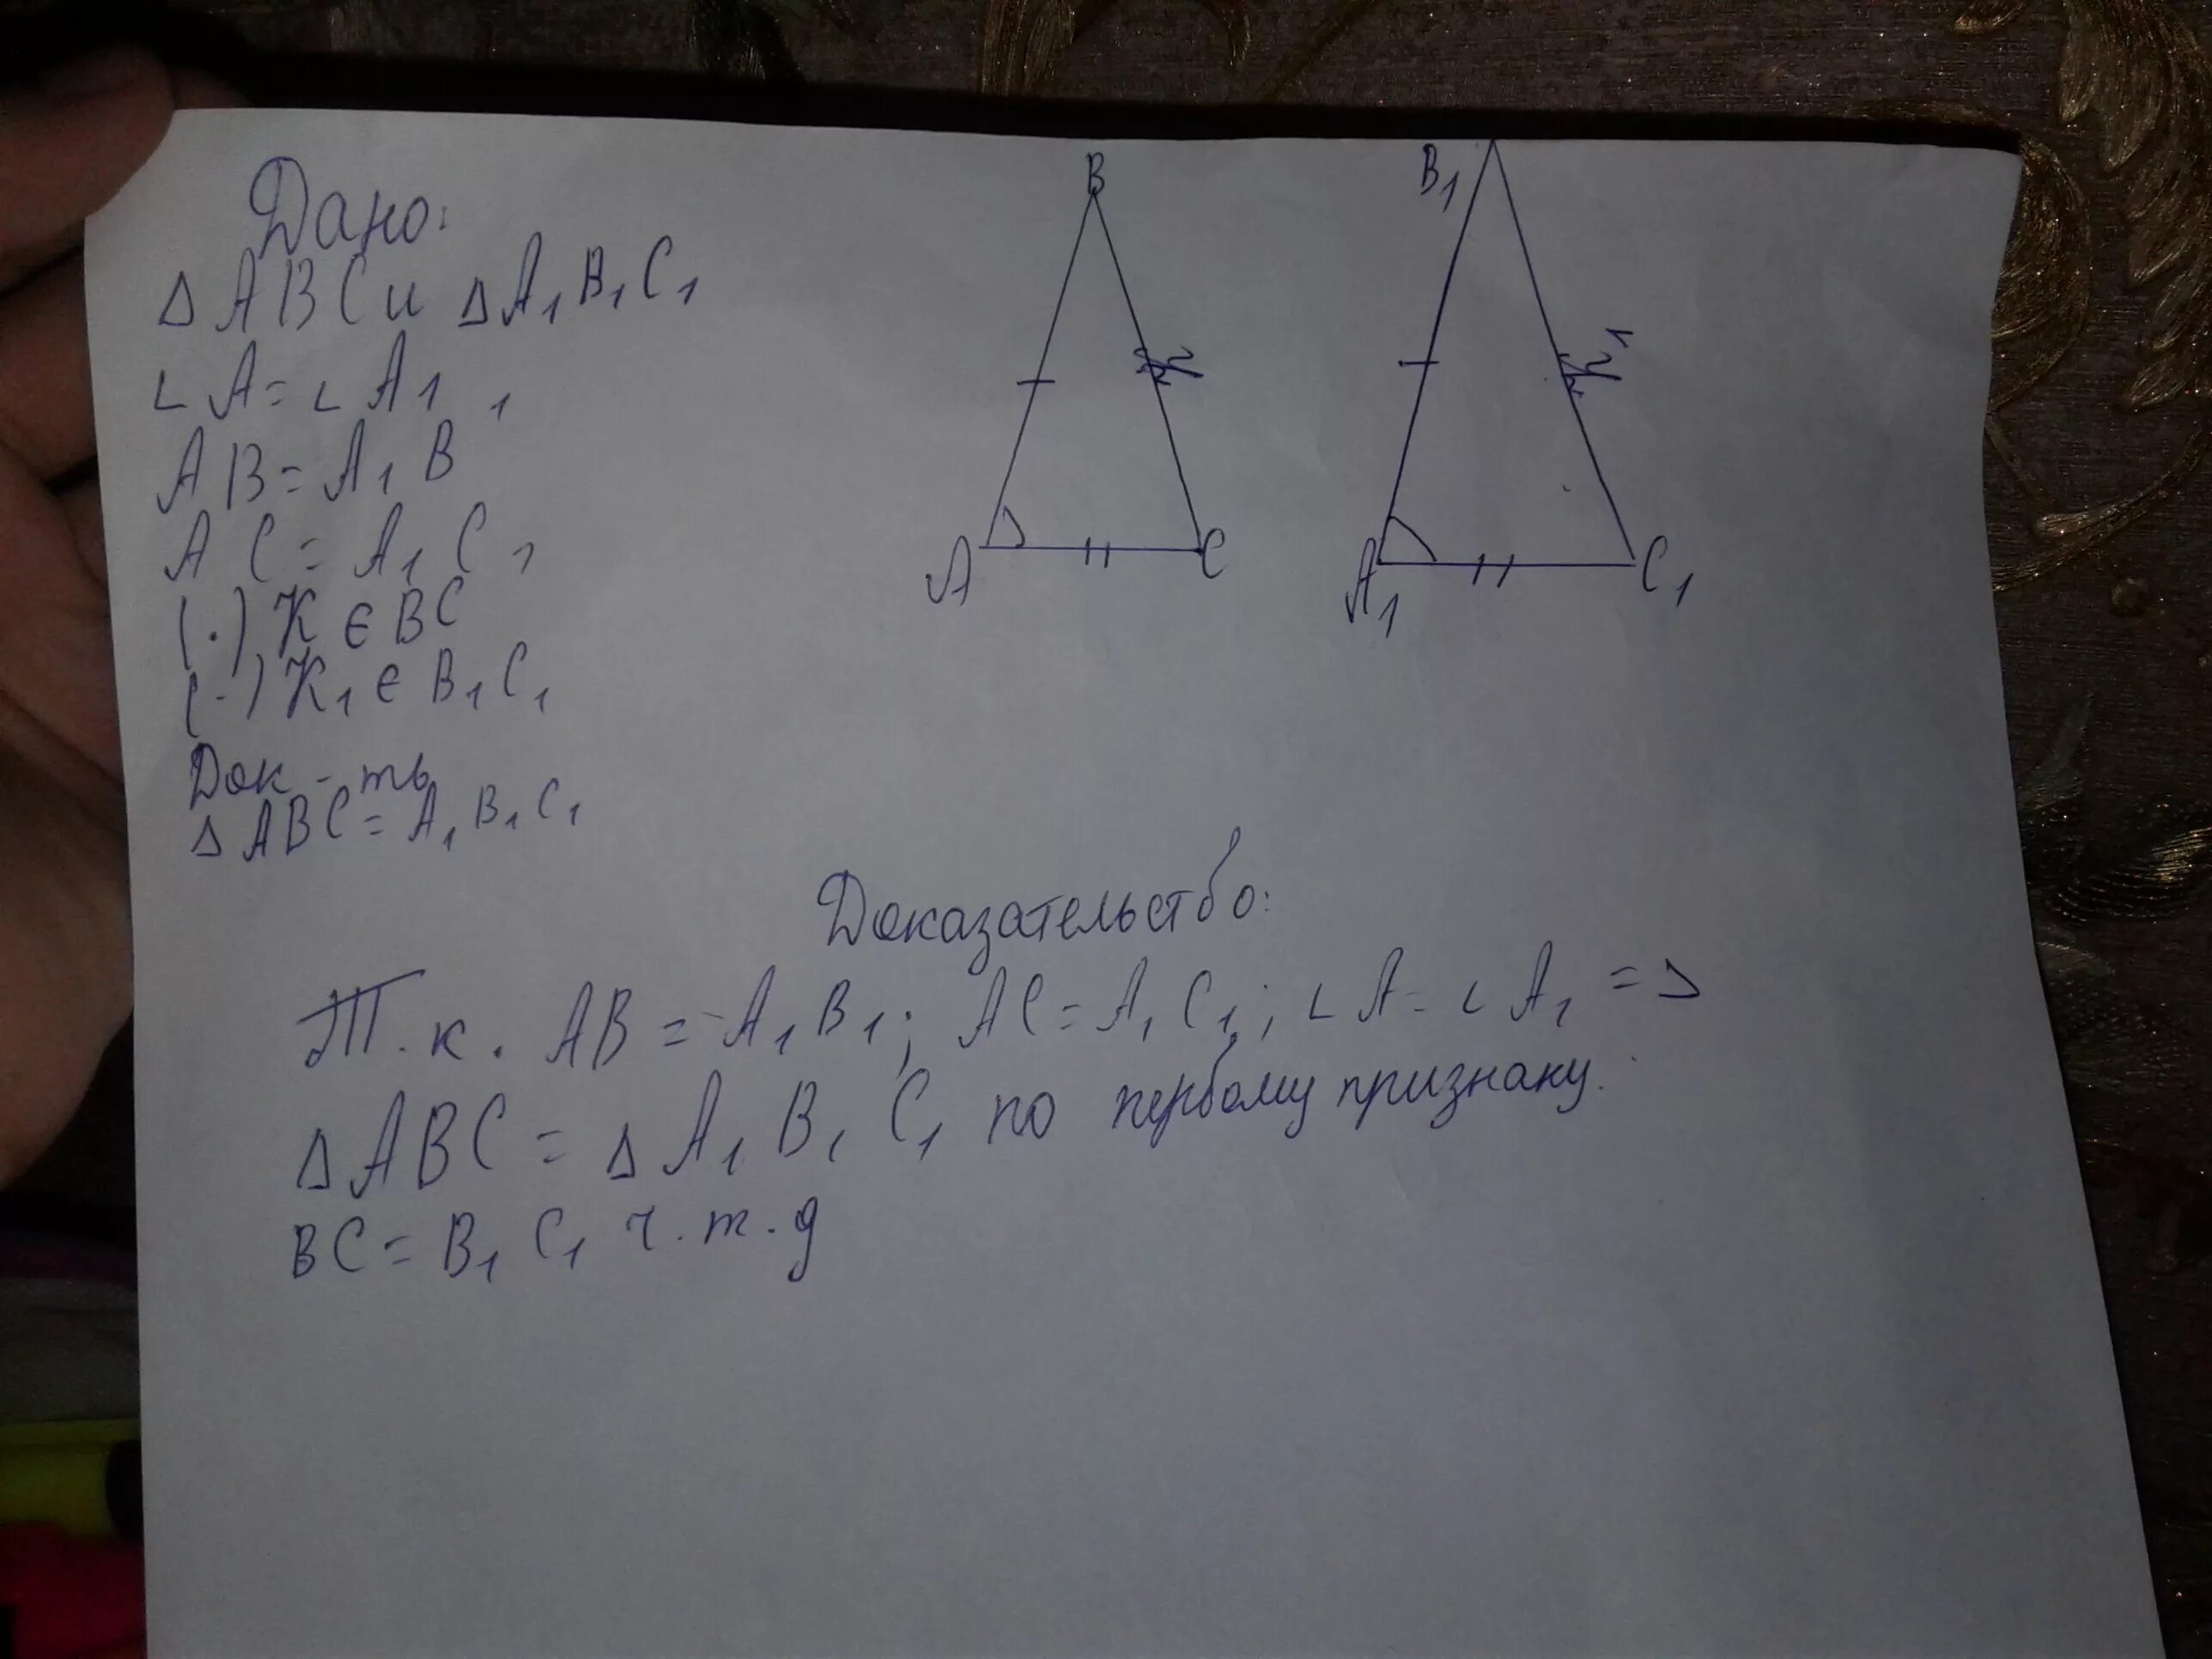 Дано:
∆ ABC и ∆ A₁B₁C₁
∠A = ∠A₁
AB = A₁B₁
AC = A₁C₁
(·) K ∈ BC
(·) K₁ ∈ B₁C₁
Док-ть
∆ ABC = A₁B₁C₁
B
A
C
B₁
A₁
C₁
Доказательство:
Т.к. AB = A₁B₁; AC = A₁C₁; ∠A = ∠A₁ =>
∆ ABC = ∆ A₁B₁C₁ по первому признаку.
BC = B₁C₁ ч.т.д